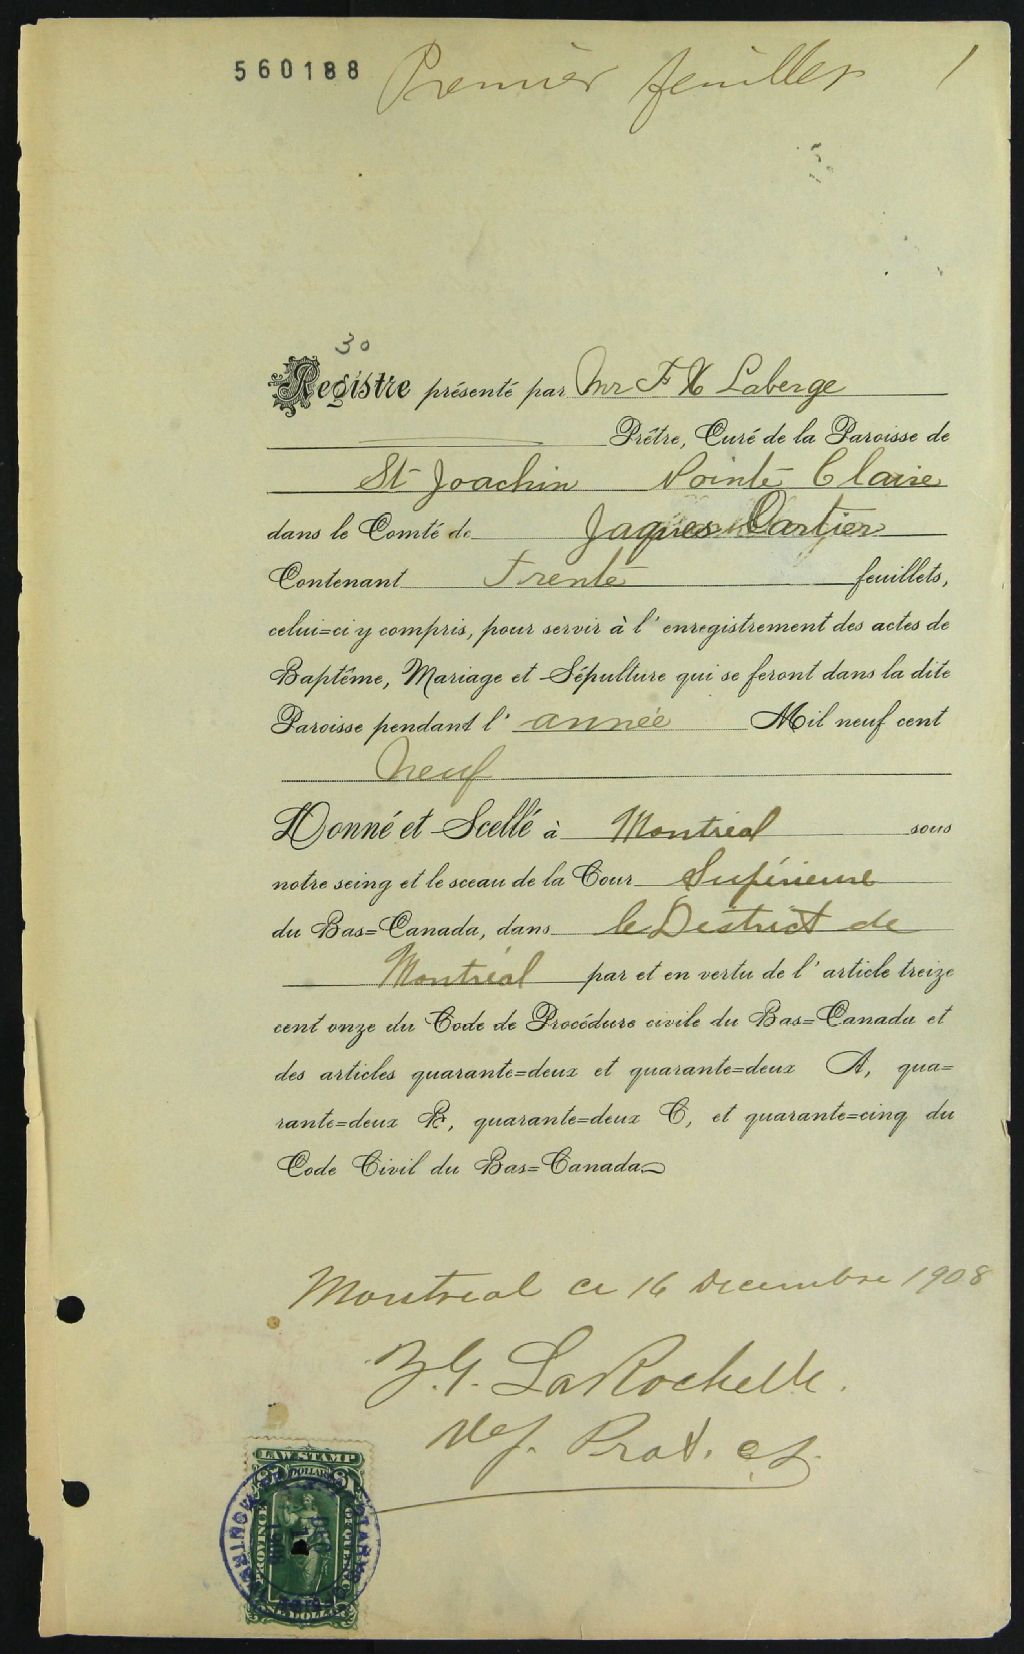 560188 Premier feuillet 1
30
Registre présenté par Mr F X Laberge
Prêtre, Curé de la Paroisse de
St Joachin Pointe Claire
dans le Comté de Jaques Cartier
Contenant Trente feuillets,
celui=ci y compris, pour servir à l'enregistrement des actes de
Baptême, Mariage et Sépulture qui se feront dans la dite
Paroisse pendant l'année Mil neuf cent
Neuf
Donné et Scellé à Montreal sous
notre seing et le sceau de la Cour Supérieure
du Bas=Canada, dans le District de
Montréal par et en vertu de l'article treize
cent onze du Code de Procédure civile du Bas=Canada et
des articles quarante=deux et quarante=deux A, qua=
rante=deux B, quarante=deux C, et quarante=cinq du
Code Civil du Bas=Canada
Montreal ce 16 Decembre 1908
LaRochelle.
Dep. Prot. C.S.
LAW STAMP
DOLLAR
PROVINCE
OF QUEBEC
ONE DOLLAR
DEC
1908